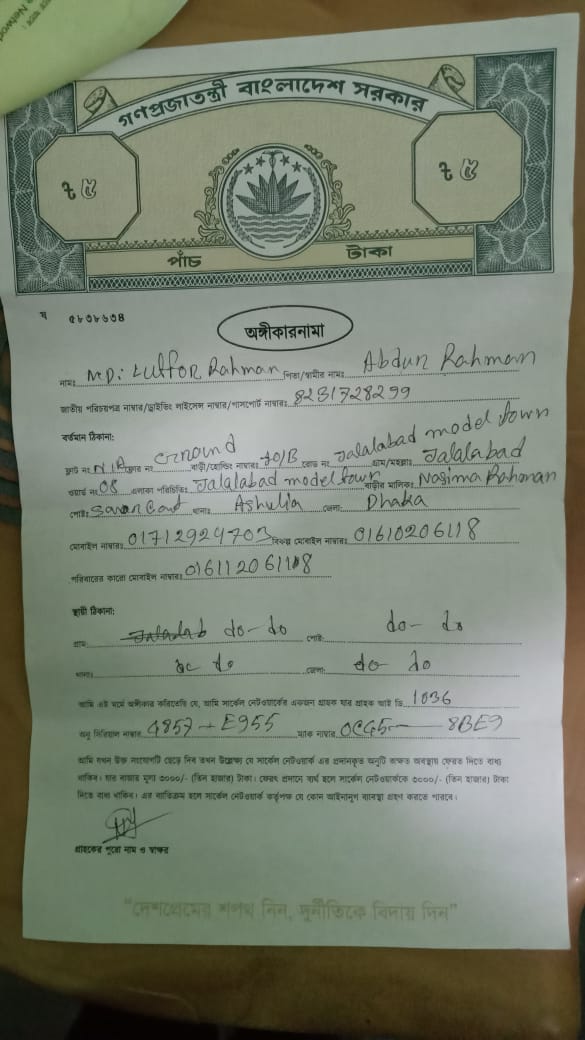 গণপ্রজাতন্ত্রী বাংলাদেশ সরকার
৳ ৫ ৳ ৫
পাঁচ টাকা
ষ ৫৮৩৮৬৩৪
অঙ্গীকারনামা
নামঃ MD: Lutfor Rahman পিতা/স্বামীর নামঃ Abdur Rahman
জাতীয় পরিচয়পত্র নাম্বার/ড্রাইভিং লাইসেন্স নাম্বার/পাসপোর্ট নাম্বারঃ 8231728299
বর্তমান ঠিকানা:
ফ্ল্যাট নং N/A ফ্লোর নং Ground বাড়ী/হোল্ডিং নাম্বারঃ 70/B রোড নং Jalalabad model town গ্রাম/মহল্লাঃ Jalalabad
ওয়ার্ড নং 08 এলাকা পরিচিতিঃ Jalalabad model town বাড়ীর মালিকঃ Nasima Rahman
পোষ্টঃ Savar Cant থানাঃ Ashulia জেলাঃ Dhaka
মোবাইল নাম্বারঃ 01712924703 বিকল্প মোবাইল নাম্বারঃ 01610206118
পরিবারের কারো মোবাইল নাম্বারঃ
স্থায়ী ঠিকানা:
গ্রামঃ do-do পোষ্টঃ do-do
থানাঃ do জেলাঃ do do
আমি এই মর্মে অঙ্গীকার করিতেছি যে, আমি সার্কেল নেটওয়ার্কের একজন গ্রাহক যার গ্রাহক আই ডি 1036
অনু সিরিয়াল নাম্বার 4857-E955 ম্যাক নাম্বার 0C45- 8BE9
আমি যখন উক্ত সংযোগটি ছেড়ে দিব তখন উল্লেখ্য যে সার্কেল নেটওয়ার্ক এর প্রদানকৃত অনুটি অক্ষত অবস্থায় ফেরত দিতে বাধ্য
থাকিব। যার বাজার মূল্য ৩০০০/- (তিন হাজার) টাকা। ফেরৎ প্রদানে ব্যর্থ হলে সার্কেল নেটওয়ার্ককে ৩০০০/- (তিন হাজার) টাকা
দিতে বাধ্য থাকিব। এর ব্যতিক্রম হলে সার্কেল নেটওয়ার্ক কর্তৃপক্ষ যে কোন আইনানুগ ব্যবস্থা গ্রহণ করতে পারবে।
গ্রাহকের পুরো নাম ও স্বাক্ষর
"দেশপ্রেমের শপথ নিন, দুর্নীতিকে বিদায় দিন"